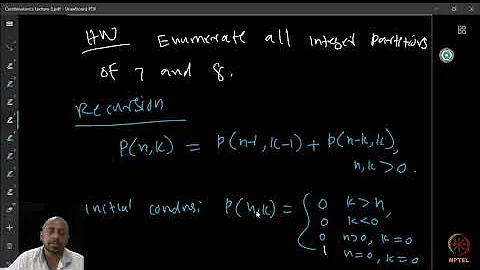 Combinatorics Lecture 3.pdf - Drawboard PDF
HW Enumerate all integer partitions
of 7 and 8.
Recursion
P(n,k) = p(n-1, k-1) + p(n-k, k),
n, k > 0.
initial condns: P(n,k) = { 0 k > n,
0 k < 0,
0 n > 0, k = 0
1 n = 0, k = 0
NPTEL